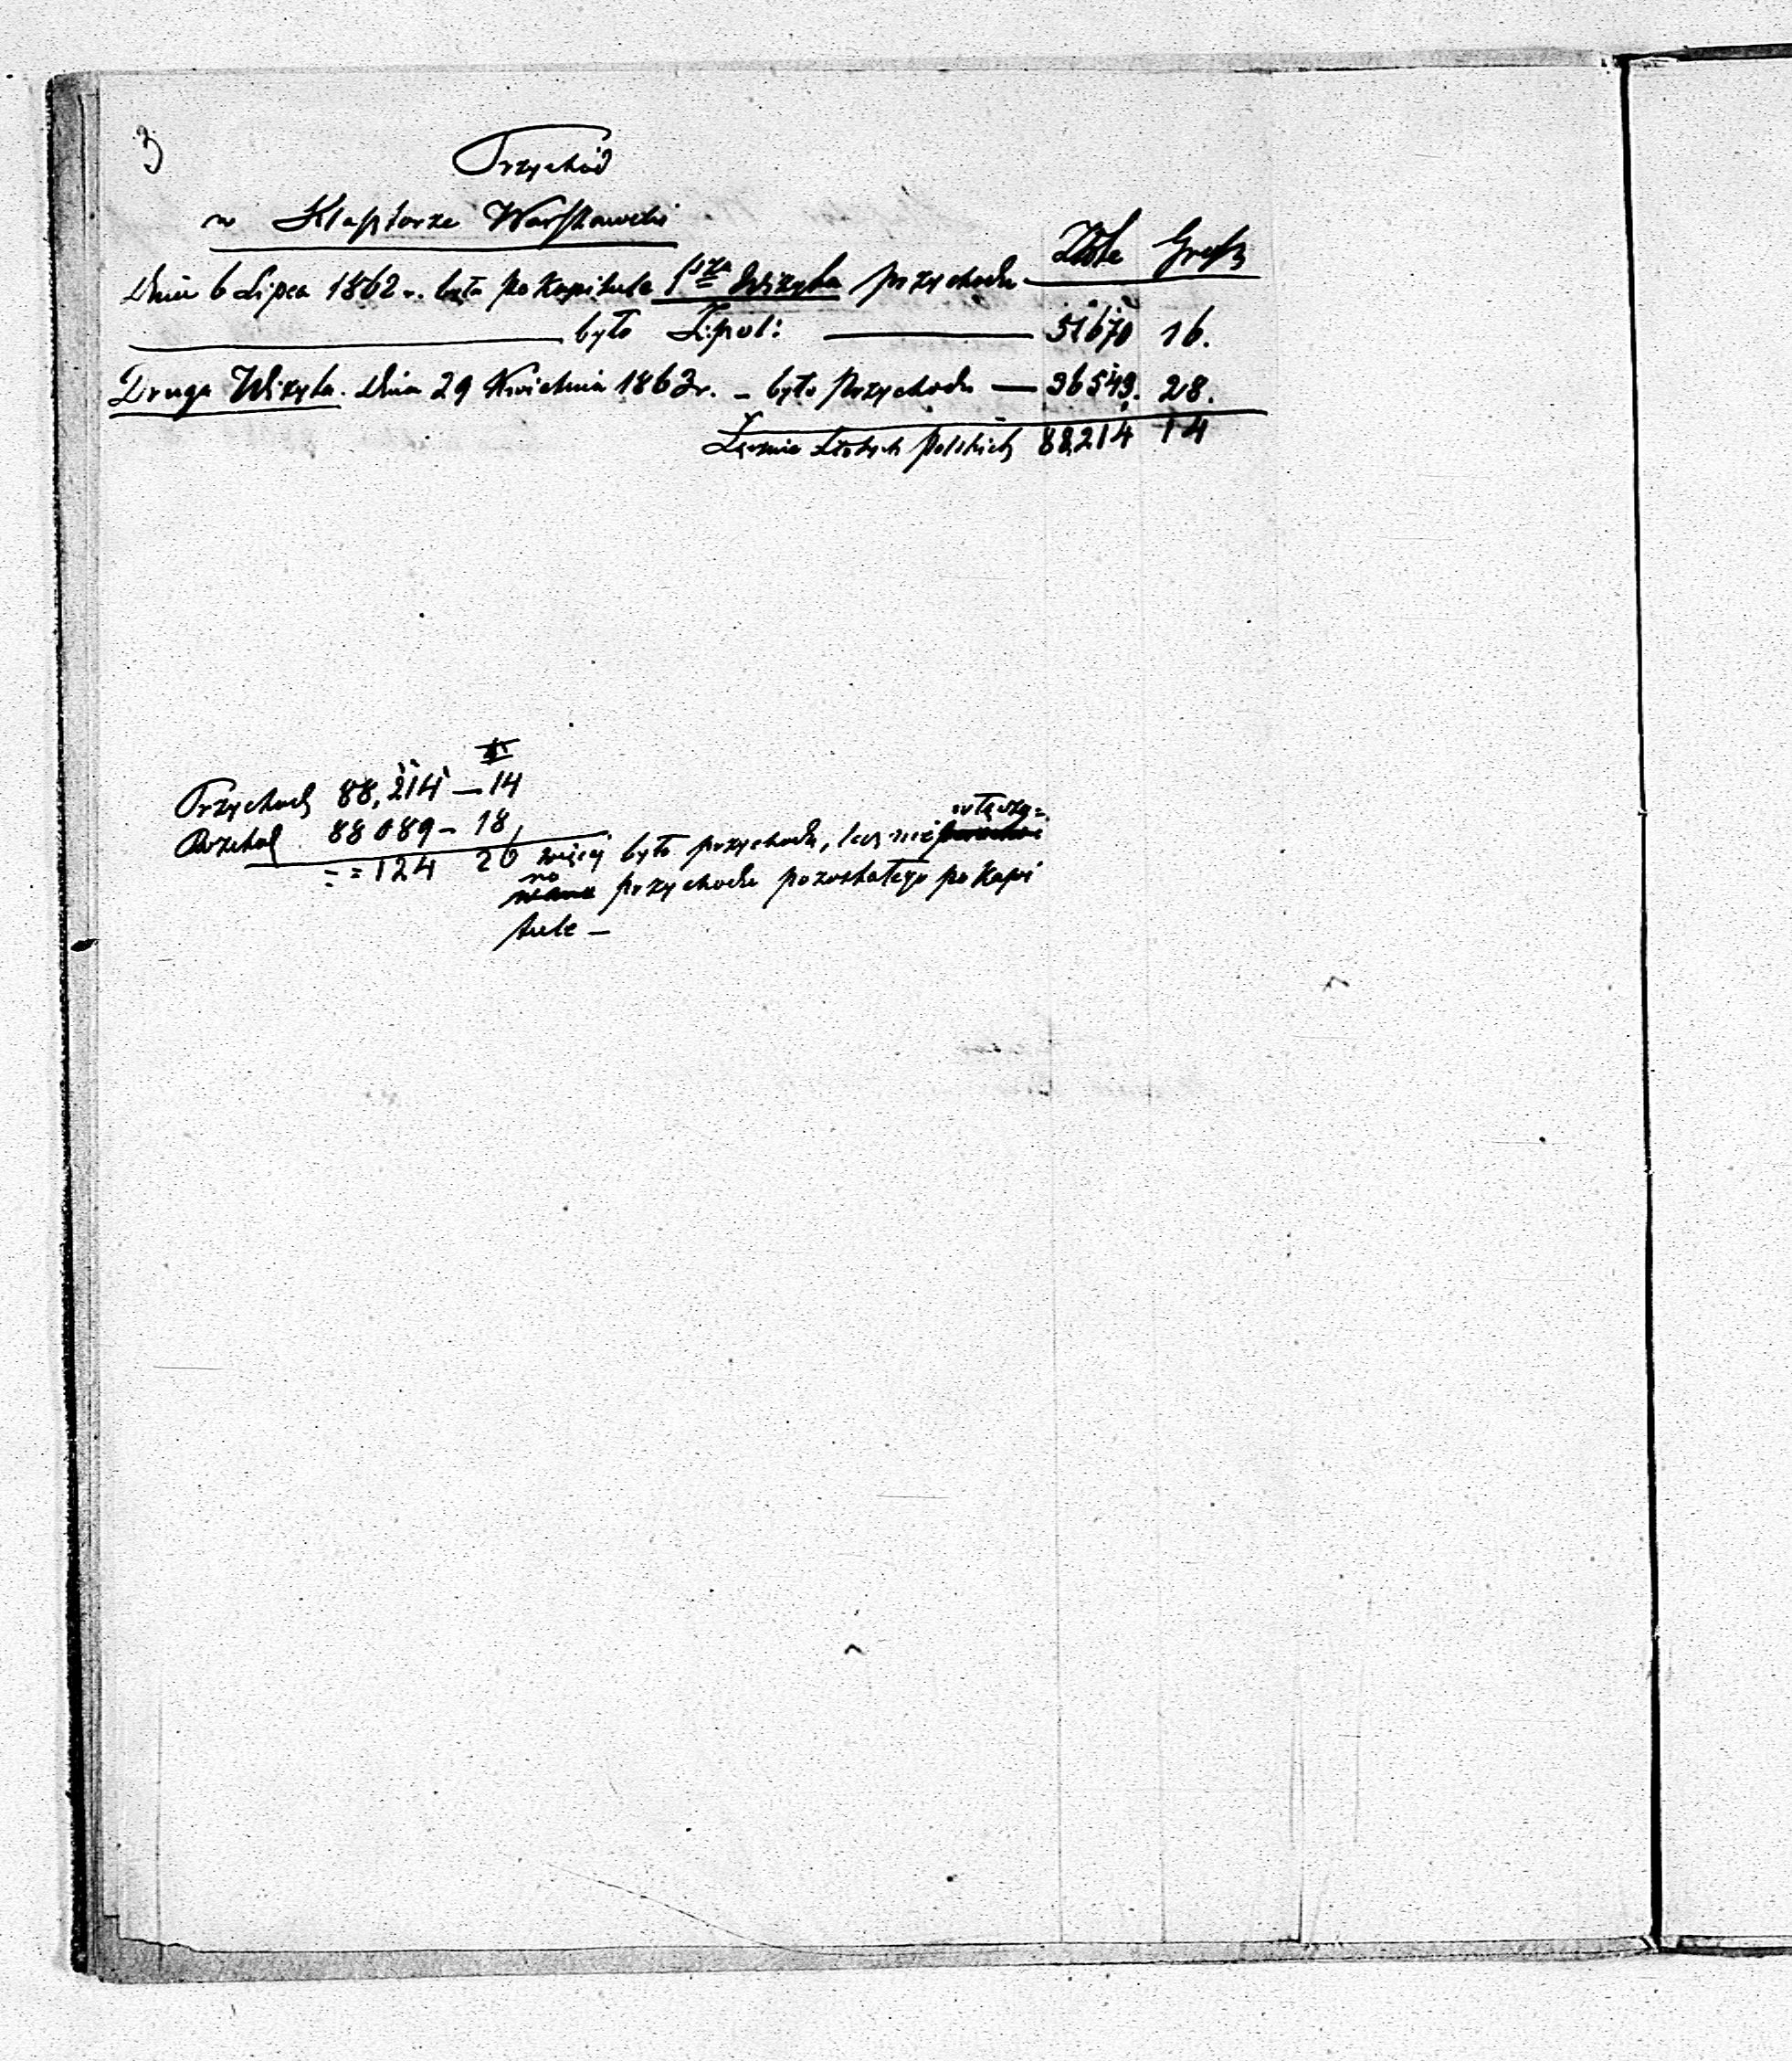 3
Przychód
w Klasztorze Warszawski
Złote Grosz
Dnia 6 Lipca 1862 r. była po Kapitule 1sza Wizyta przychodu
było Złpol: 51670 16.
Druga Wizyta. Dnia 29 Kwietnia 1863 r. – było Przychodu — 36543. 28.
Łącznie Złotych Polskich 88,214 14
Przychod 88,214 — 14
Rozchod 88089 – 18 włączo=
= = 124 26 więcej było przychodu, lecz nie
no przychodu pozostałego po Kapi
tule –